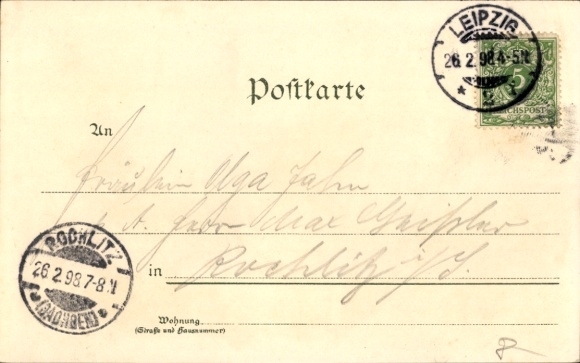 LEIPZIG
26.2.98.4-5N.
* 2 f
5
REICHSPOST
Postkarte
An
Fräulein Olga Jahn
p. A. Herrn Max Geißler
in Rochlitz i/S.
ROCHLITZ
26.2.98.7-8.N.
(SACHSEN)
Wohnung
(Straße und Hausnummer)